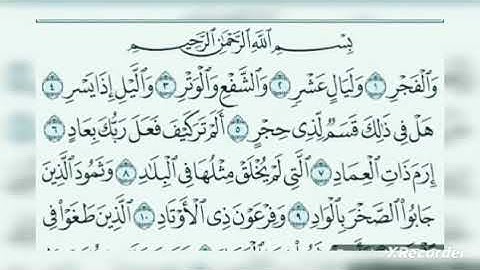 بِسْمِ ٱللَّهِ ٱلرَّحْمَٰنِ ٱلرَّحِيمِ
وَٱلْفَجْرِ ١ وَلَيَالٍ عَشْرٍ ٢ وَٱلشَّفْعِ وَٱلْوَتْرِ ٣ وَٱلَّيْلِ إِذَا يَسْرِ ٤
هَلْ فِي ذَٰلِكَ قَسَمٌ لِّذِي حِجْرٍ ٥ أَلَمْ تَرَ كَيْفَ فَعَلَ رَبُّكَ بِعَادٍ ٦
إِرَمَ ذَاتِ ٱلْعِمَادِ ٧ ٱلَّتِي لَمْ يُخْلَقْ مِثْلُهَا فِي ٱلْبِلَٰدِ ٨ وَثَمُودَ ٱلَّذِينَ
جَابُوا۟ ٱلصَّخْرَ بِٱلْوَادِ ٩ وَفِرْعَوْنَ ذِي ٱلْأَوْتَادِ ١٠ ٱلَّذِينَ طَغَوْا۟ فِي
X.Recorder